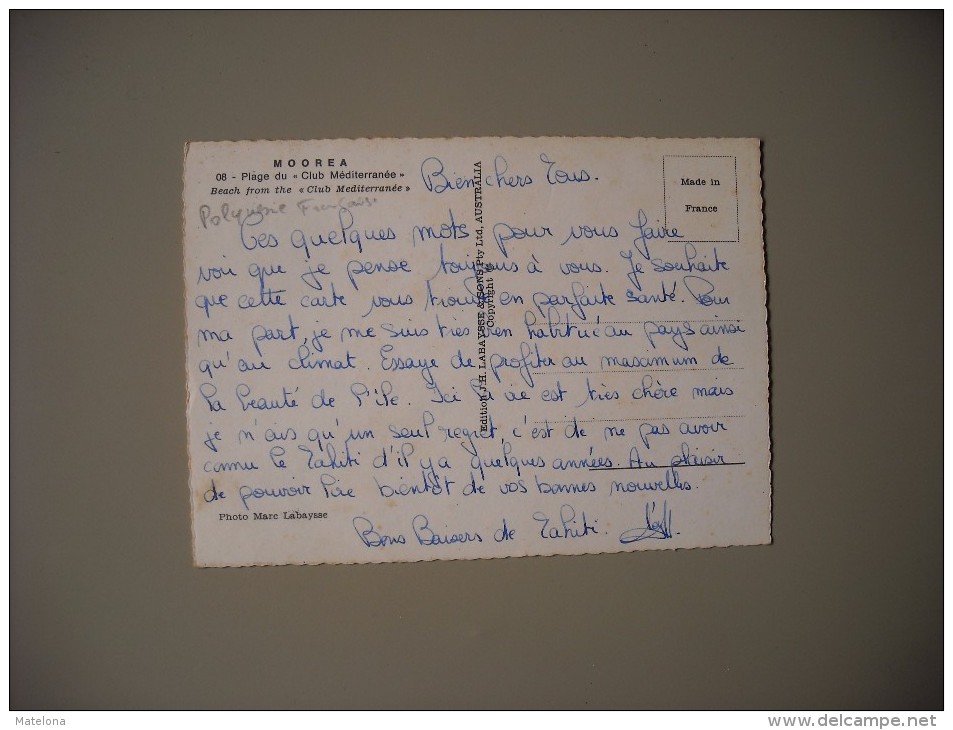 MOOREA
08 - Plage du « Club Méditerranée »
Beach from the « Club Mediterranée »
Polynesie Française
Made in
France
Edition J.H. LABAYSSE & SONS Pty Ltd, AUSTRALIA
Copyright ©
Bien chers Tous.
Ces quelques mots pour vous faire
voir que je pense toujours à vous. Je souhaite
que cette carte vous trouve en parfaite santé. Pour
ma part, je me suis très bien habitué au pays ainsi
qu'au climat. Essaye de profiter au maximum de
la beauté de l'île. Ici la vie est très chère mais
je n'ais qu'un seul regret, c'est de ne pas avoir
connu le Tahiti d'il y a quelques années. Au plaisir
de pouvoir lire bientôt de vos bonnes nouvelles.
Photo Marc Labaysse
Bons Baisers de Tahiti.
Matelona
www.delcampe.net